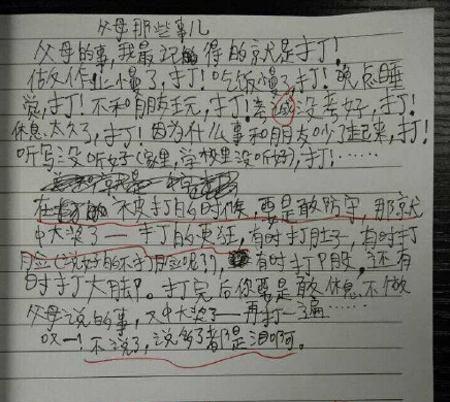 父母那些事儿
父母的事,我最记的得的就是打!
做作业慢了,打!吃饭慢了,打!晚点睡
觉,打!不和朋友玩,打!考试没考好,打!
休息太久了,打!因为什么事和朋友吵了起来,打!
听写没听好(家里,学校里没听好),打!……
在被打的时候,要是敢防守,那就
中大奖了——打的更狂,有时打肚子,有时打
月佥(说好的不打月佥呢?!),有时打P股,还有
时打大月却。打完后你要是敢休息不做
父母说的事,又中大奖了——再打一遍……
哎——!不说了,说多了都是泪啊。